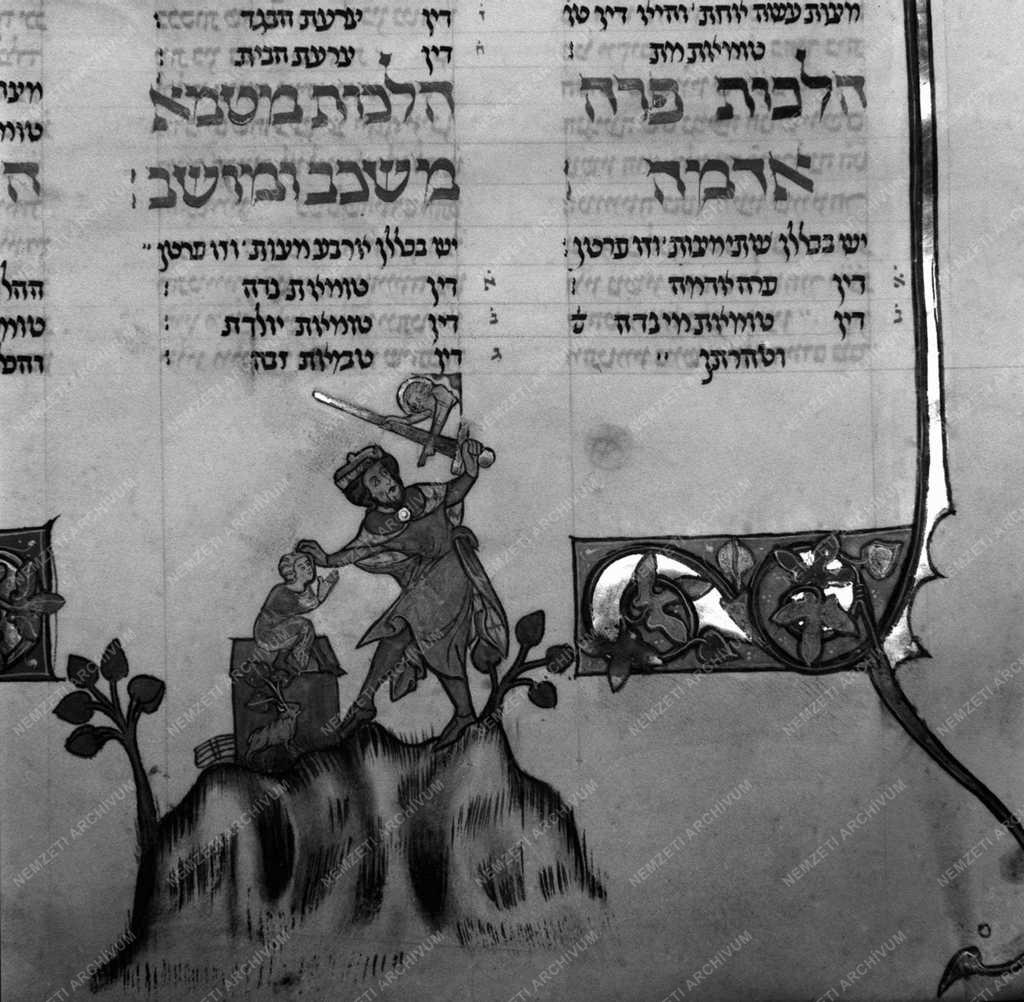 מצות עשה אחת והיא דין
טומאת מת :
הלכות פרה
אדמה :
יש בכללן שתי מצות וזו פרטן :
א דין פרה אדמה :
ב דין טומאת מי נדה
וטהרתן
ז דין צרעת הבגד :
ח דין צרעת הבית :
הלכות מטמא
משכב ומושב :
יש בכללן ארבע מצות וזו פרטן
א דין טומאת נדה :
ב דין טומאת יולדת :
ג דין טומאת זבה :
NEMZETI ARCHÍVUM